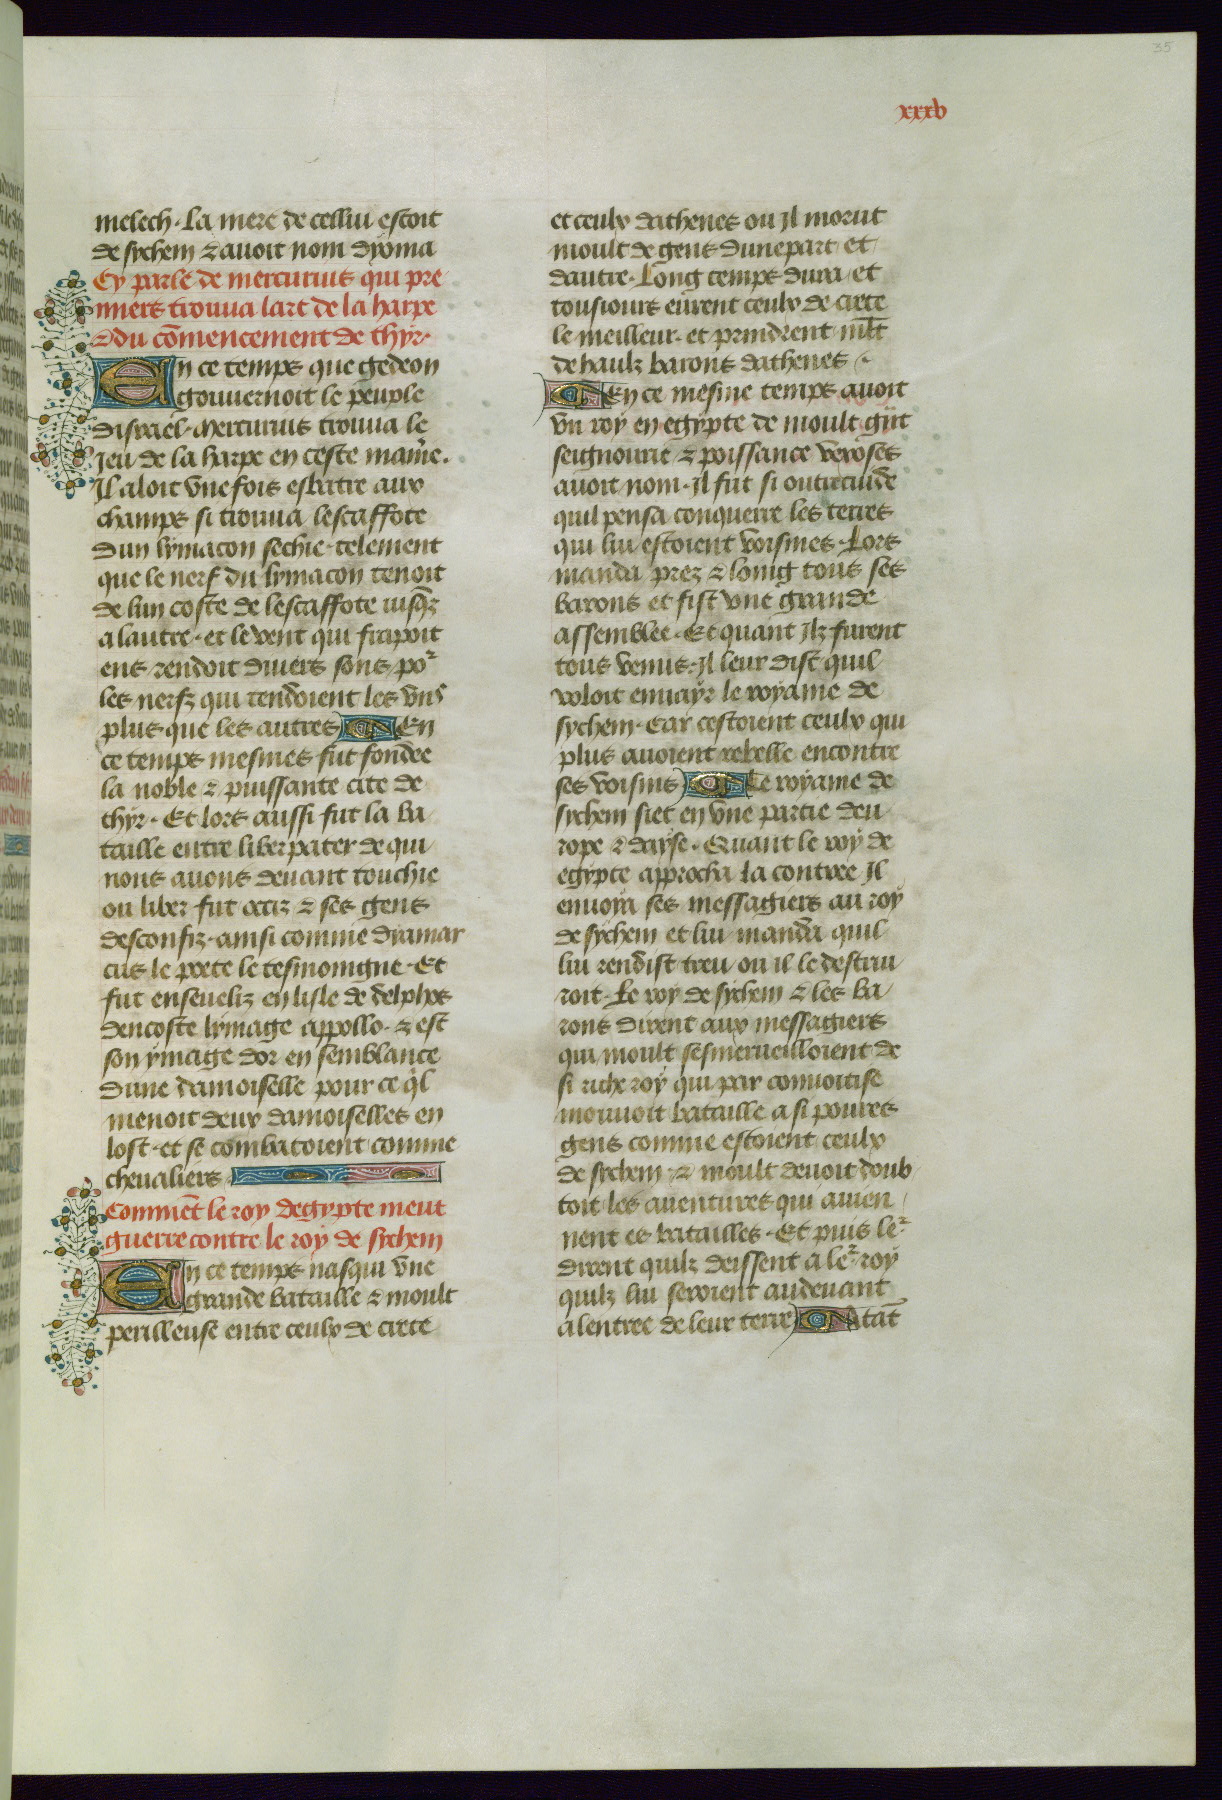 35
xxxv
melech. La mere de celluy estoit
de sychem & auoit nom dyoma
Cy parle de mercurius qui pre
miers trouua lart de la harpe
& du cōmencement de thyr.
En ce temps que gedeon
gouuernoit le peuple
disrael. mercurius trouua le
Jeu de la harpe en ceste maniere.
Il aloit vne fois esbatre aux
champs si trouua lescaffote
dun lymacon sechie. telement
que le nerf du lymacon tenoit
de lun coste de lescaffote iusqz
a lautre. et le vent qui frapoit
ens rendoit diuers sons por
les nerfz qui tendoient les vns
plus que les autres En
ce temps mesmes fut fondee
la noble & puissante cite de
thyr. Et lors aussi fut la ba
taille entre liber pater de qui
nous auons deuant touchie
ou liber fut occiz & ses gens
desconfiz. ainsi comme dyamar
cus le poete le tesmoingne. Et
fut enseueliz en lisle de delphos
dencoste lymage appollo. & est
son ymage dor en semblance
dune damoiselle pour ce ql
menoit deux damoiselles en
lost. et se combatoient comme
cheualiers
Commēt le roy degypte meut
guerre contre le roy de sychem
En ce temps nasqui vne
grande bataille & moult
perilleuse entre ceulx de crete
et ceulx dathenes ou Il morut
moult de gens dune part et
dautre. Long temps dura et
tousiours eurent ceulx de crete
le meilleur. et prindrent mlt
de haulz barons dathenes.
En ce mesme temps auoit
vn roy en egypte de moult gnt
seignourie & poissance vexoses
auoit nom. Il fut si oultrecuide
quil pensa conquerre les terres
qui luy estoient voisines. Lors
manda prez & loing tous ses
barons et fist vne grande
assemblee. Et quant Ilz furent
tous venus. Il leur dist quil
voloit enuayr le royame de
sychem. Car cestoient ceulx qui
plus auoient rebelle encontre
ses voisins Le royame de
sychem siet en vne partie deu
rope & dayse. Quant le roy de
egypte approcha la contree Il
enuoya ses messagiers au roy
de sychem et luy manda quil
luy rendist treu ou il le destrui
roit. Le roy de sychem & les ba
rons dirent aux messagiers
qui moult sesmerueilloient de
si riche roy qui par conuoitise
mouuoit bataille a si poures
gens comme estoient ceulx
de sychem. & moult deuoit doub
toit les auentures qui auien
nent es batailles. Et puis ler
dirent quilz deissent a ler roy
quilz luy seroient audeuant
a lentree de leur terre Atāt